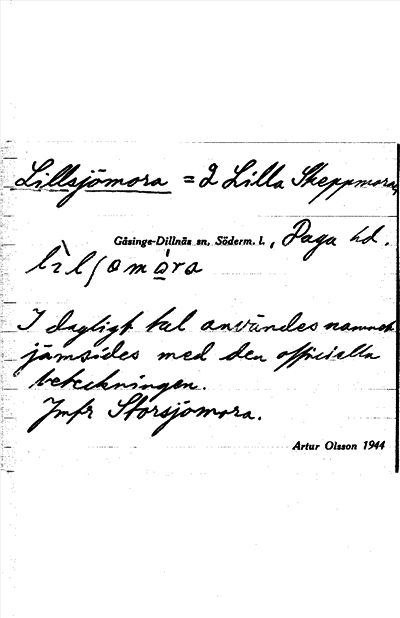 Lillsjömora = 2 Lilla Skeppmora,
Gåsinge-Dillnäs sn, Söderm. l., Daga hd.
lìlʃømára
I dagligt tal användes namnet
jämsides med den officiella
beteckningen.
Jmfr Storsjömora.
Artur Olsson 1944